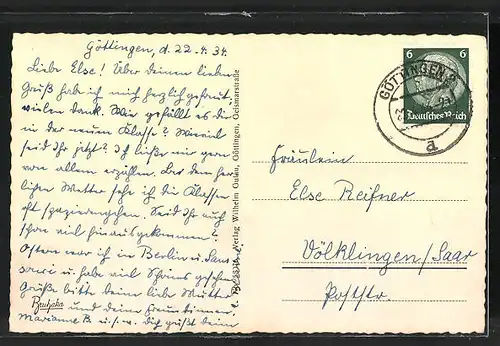 Göttingen, d. 22.4.34.
Liebe Else! Über deinen lieben
Gruß hab ich mich herzlich gefreut
vielen Dank. Wie gefällt es dir
in der neuen Klasse? Wieviel
seid Ihr jetzt? Ich ließe mir gern
von allem erzählen. Bei dem herr-
lichen Wetter sehe ich die Klassen
oft spazierengehen. Seid Ihr auch
schon viel hinausgekommen?
Ostern war ich in Berlin u. Sans
souci u. habe viel Schönes gesehen
Grüße bitte deine liebe Mutter
und deine Freundinnen
Marianne B. u.s.w. Dich grüßt deine
Verlag Wilhelm Gulau, Göttingen, Geismarstraße
GÖTTINGEN 2
a
6 6
Deutsches Reich
Fräulein
Else Reifner
Völklingen/Saar
Poststr.